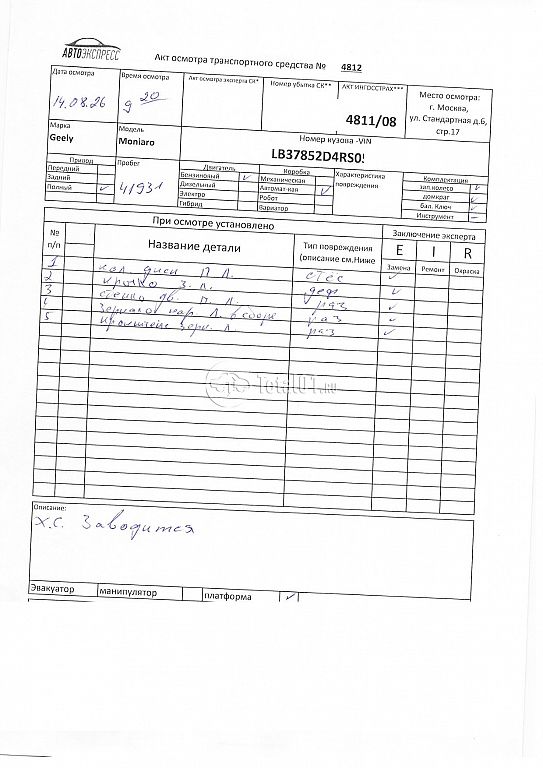 АВТОЭКСПРЕСС
Акт осмотра транспортного средства № 4812
Дата осмотра
14.08.26
Время осмотра
9 20
Акт осмотра эксперта СК*
Номер убытка СК**
АКТ ИНГОССТРАХ***
4811/08
Место осмотра:
г. Москва,
ул. Стандартная д.6,
стр.17
Марка
Geely
Модель
Moniaro
Номер кузова -VIN
LB37852D4RS0
Привод
Передний
Задний
Полный ✓
Пробег
41931
Двигатель
Бензиновый ✓
Дизельный
Электро
Гибрид
Коробка
Механическая
Автомат-кая ✓
Робот
Вариатор
Характеристика
повреждения
Комплектация
зап.колесо ✓
домкрат ✓
бал. Ключ ✓
Инструмент –
При осмотре установлено
Заключение эксперта
№
п/п
Название детали
Тип повреждения
(описание см.Ниже
E I R
Замена Ремонт Окраска
1 кол. диск П.Л. ✓
2 З.Л. деф ✓
3 стекло дв. П.Л. раз ✓
4 Зеркало нар. Л. в сборе раз ✓
5 зерк. Л. раз ✓
Total01.ru
Описание:
Х.С. Заводится
Эвакуатор манипулятор платформа ✓